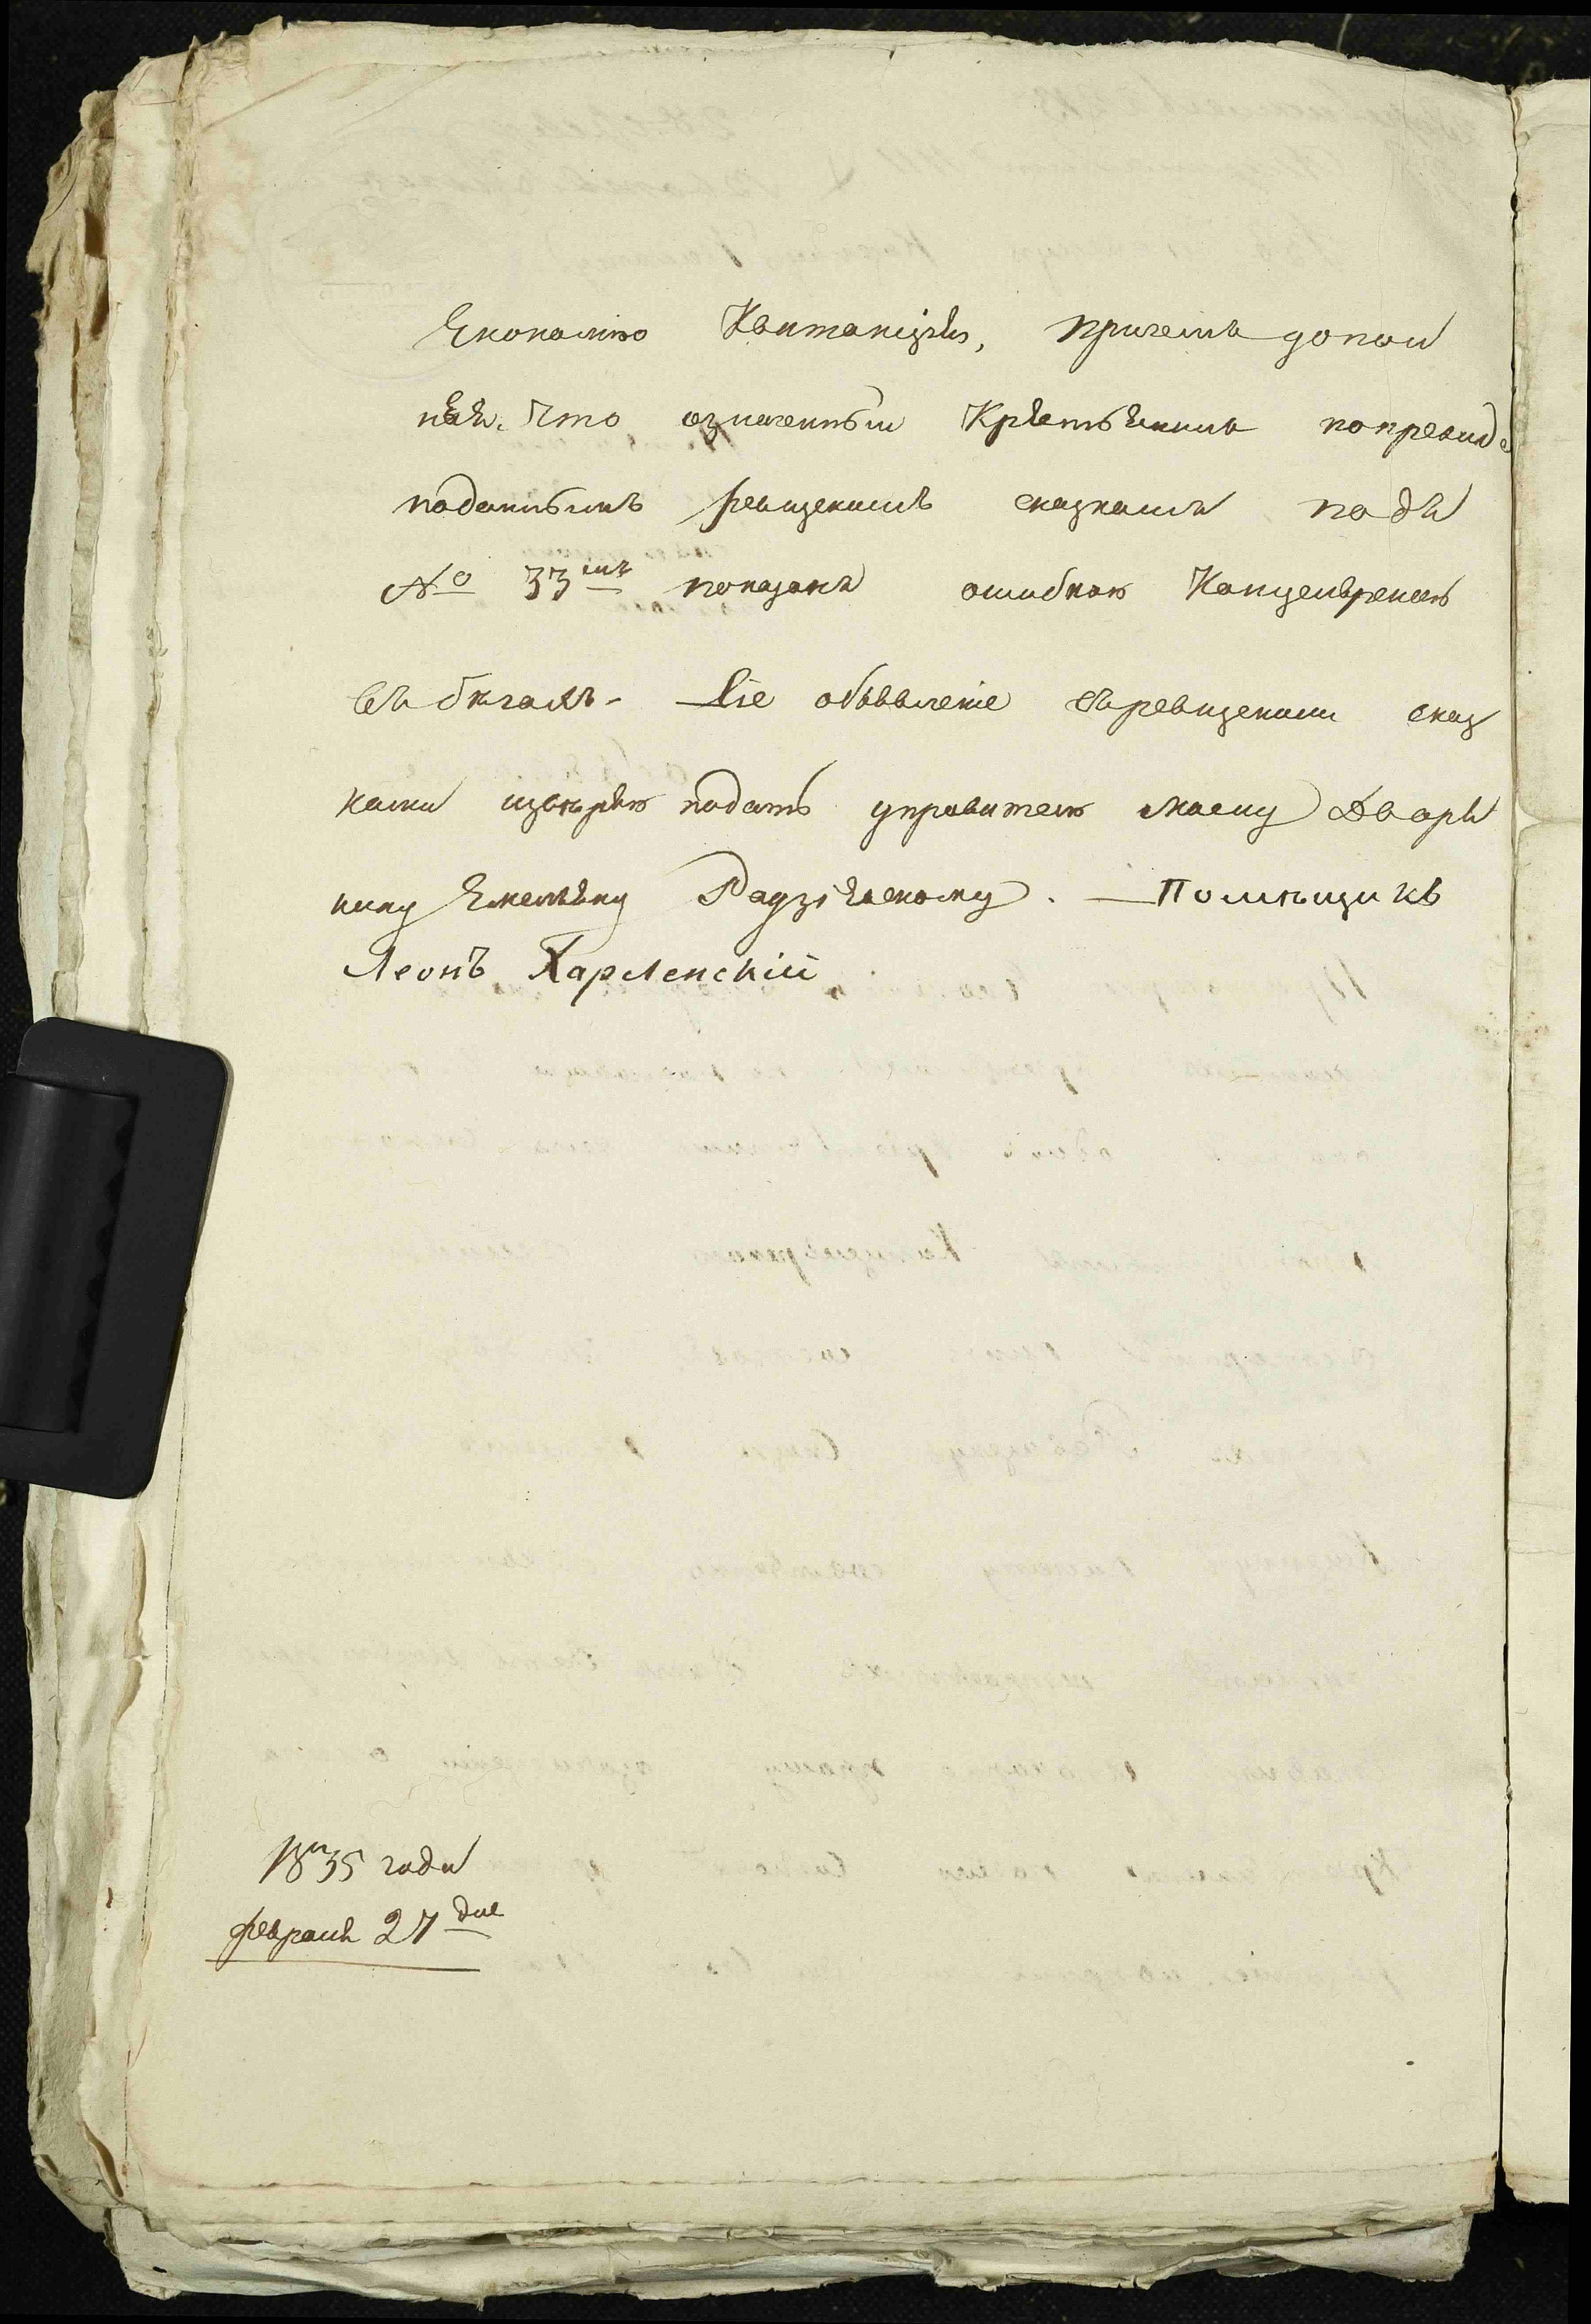 Економію Квитанцію, причемъ допол
няя. что означенный Крѣстьянинъ попрежде
поданнымъ ревизскимъ сказкамъ подъ
№ 33мъ показанъ ошибкою Канцелярскою
въ бѣгахъ. — Сіе объявленіе съ ревизскими сказ
ками ввѣряю подать управителю моему Дворя
нину Емельяну Радзіевскому. — Помѣщикъ
Леонъ Харленскій
1835 года
февраля 27 дня